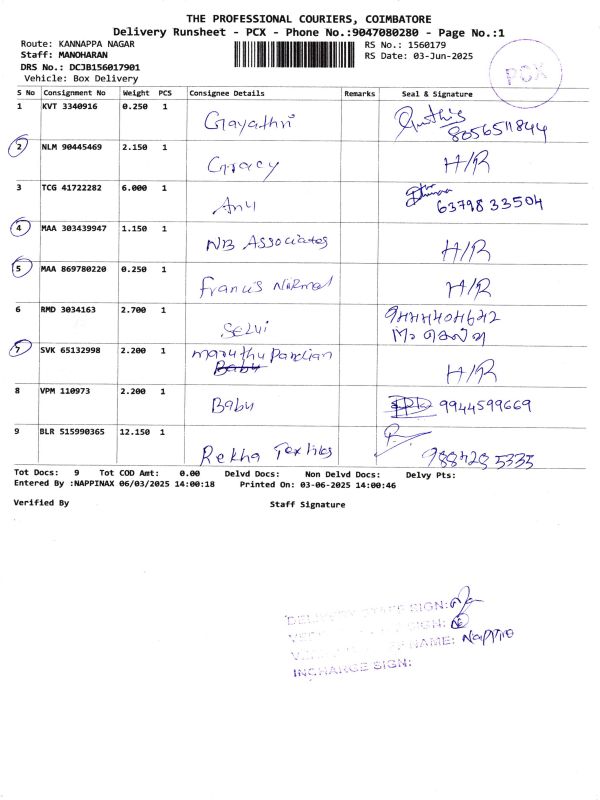 THE PROFESSIONAL COURIERS, COIMBATORE
Delivery Runsheet - PCX - Phone No.:9047080280 - Page No.:1
Route: KANNAPPA NAGAR
RS No.: 1560179
Staff: MANOHARAN
RS Date: 03-Jun-2025
DRS No.: DCJB156017901
Vehicle: Box Delivery
PCX
S No Consignment No Weight PCS Consignee Details Remarks Seal & Signature
1 KVT 3340916 0.250 1 Gayathri 8056511844
2 NLM 90445469 2.150 1 Gracy H/R
3 TCG 41722282 6.000 1 Anu 6379833504
4 MAA 303439947 1.150 1 NB Associates H/R
5 MAA 869780220 0.250 1 Francis Nirmal H/R
6 RMD 3034163 2.700 1 Selvi 9444404642
7 SVK 65132998 2.200 1 maruthu Pandian Babu H/R
8 VPM 110973 2.200 1 Babu 9944599669
9 BLR 515990365 12.150 1 Rekha Textiles 988428 5335
Tot Docs: 9 Tot COD Amt: 0.00 Delvd Docs: Non Delvd Docs: Delvy Pts:
Entered By :NAPPINAX 06/03/2025 14:00:18 Printed On: 03-06-2025 14:00:46
Verified By Staff Signature
DELIVERY STAFF SIGN:
SIGN:
NAME: Nappina
INCHARGE SIGN: